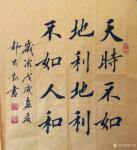 天時不如
地利地利
不如人和
歲次戊戌孟夏
書